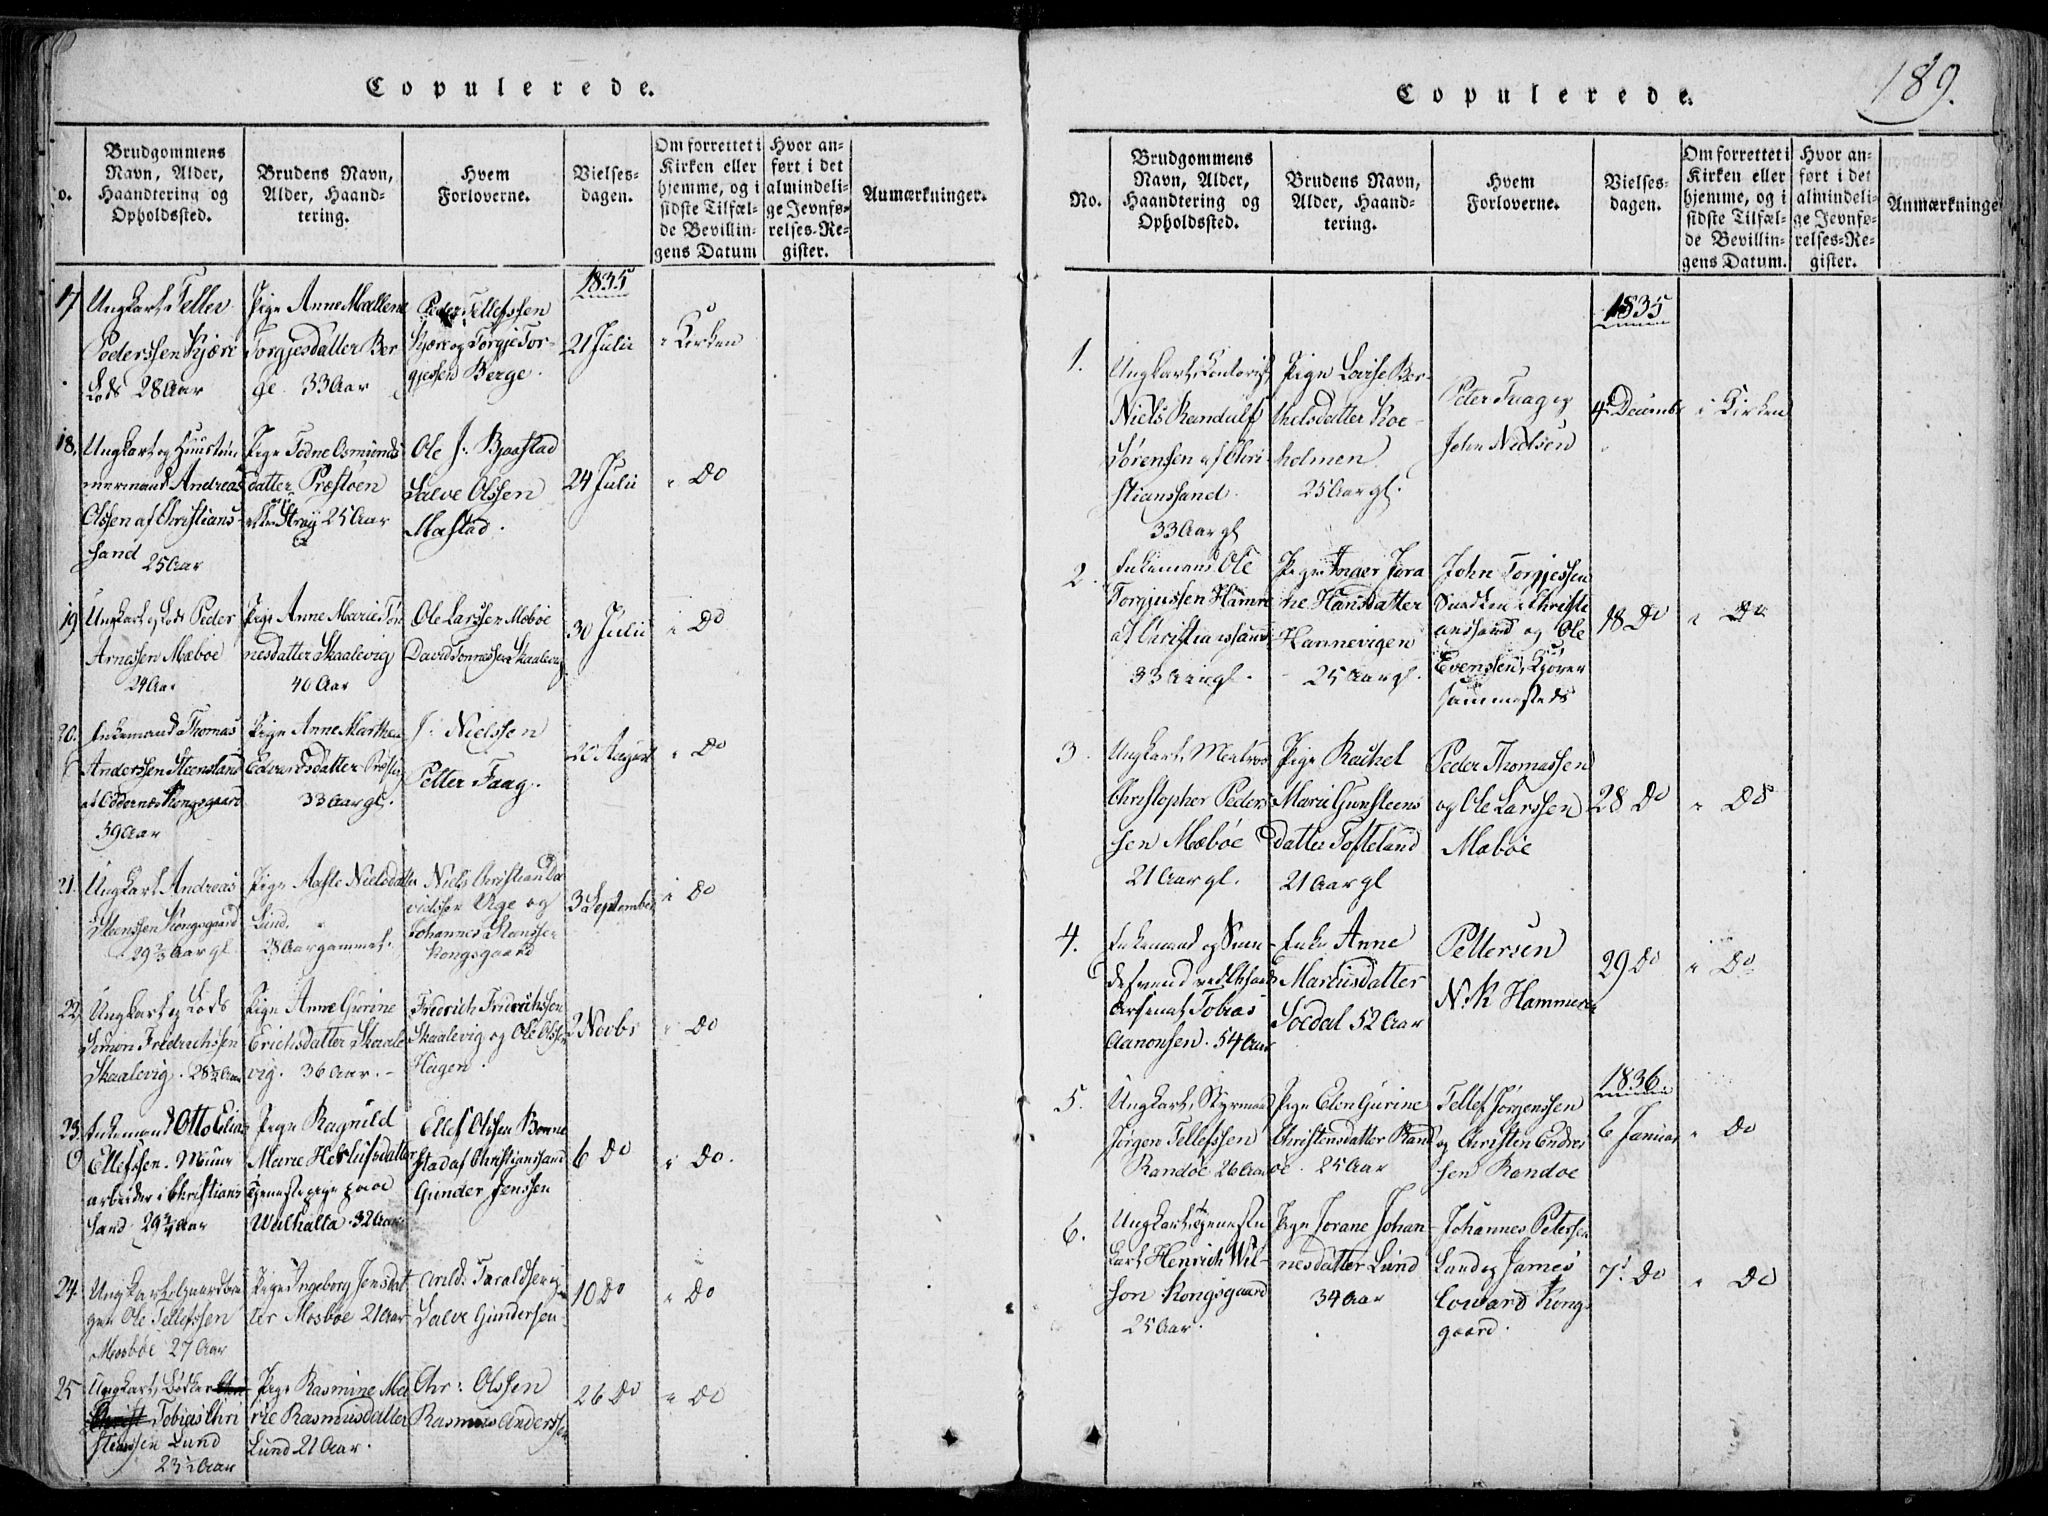 Copulerede.
o.
Brudgommens Navn, Alder, Haandtering og Opholdssted.
Brudens Navn, Alder, Haandtering.
Hvem Forloverne.
Vielsesdagen.
Om forrettet i Kirken eller hjemme, og i sidste Tilfælde Bevillingens Datum
Hvor anført i det almindelige Jevnførelses-Register.
Anmærkninger.
1835
17
Ungkarl Tellev
Pedersen Kjære
Lods 28 Aar
Pige Anne Mallene
Torgjesdatter Berge. 33 Aar
Peder Tellefssen
Kjære og Torgje Torgjessen Berge.
21 Julii
i Kirken
18.
Ungkarl og
Andreas
Olssen af Christianssand
25 Aar
Pige Todne Osmundsdatter Præstøen
Strøy 25 Aar
Ole J: Bjaastad
Salve Olssen
Mastad.
24 Julii
" Do
19
Ungkarl og Lods Peder
Arnessen Mæbøe
24 Aar
Pige Anne Marie Tønnesdatter Skaalevig
40 Aar
Ole Larssen Mæbøe
David Tønnessen Skaalevig
30 Julii
i Do
20.
Enkemand Thomas
Anderssen Steensland
af Oddernæs Kongsgaard
39 Aar
Pige Anne Marthea
Edvardsdatter
33 Aar gl.
J: Nielssen
Petter Faag.
August
" Do
21.
Ungkarl Andreas
Steenssen Kongsgaard
29 Aar gl.
Pige Aaste Nielsdatter
Lund.
28 Aar gammel.
Niels Christian Davidssen Vige og
Johannes Hanssen
Kongsgaard
3 September
i Do
22.
Ungkarl og Lods
Simon Fredrichssen
Skaalevig. 28 Aar
Pige Anne Gurine
Erichsdatter Skaalevig. 36 Aar.
Fredrich Fredrichssen
Skaalevig og Ole Olssen
Hagen.
2 Novbr
" Do
23.
Enkemand Otto Elias
Ellefssen. Muurarbeider i Christianssand 29 Aar
Pige Ragnild
Marie Herlufsdatter
Tjenestepige paa
Walhalla. 32 Aar
Ellef Olssen Bonnestad af Christianssand
Gunder Jenssen
6 Do
i Do.
24.
Ungkarl
Ole Tellefssen
Mosbøe 27 Aar
Pige Ingeborg Jensdatter Mosbøe 21 Aar
Arild: Taraldsen og
Salve Gundersen
10 Do
" Do
25
Ungkarl, Bødker
Tobias Christenssen Lund
23½ Aar
Pige Rasmine Marie Rasmusdatter
Lund 21 Aar.
Chr: Olssen
Rasmus Anderssen
26 Do
" Do
189.
Copulerede.
No.
Brudgommens Navn, Alder, Haandtering og Opholdssted.
Brudens Navn, Alder, Haandtering.
Hvem Forloverne.
Vielsesdagen.
Om forrettet i Kirken eller hjemme, og i sidste Tilfælde Bevillingens Datum.
Hvor anført i det almindelige Jevnførelses-Register.
Anmærkninge
1835
1.
Ungkarl, Contorist
Niels Randulf
Sørensen af Christianssand.
33 Aar gl
Pige Lovise Berthelsdatter Roeholmen.
25 Aar gl.
Peter Faag og
John Nielsen
4 Decembr
i Kirken
2.
Enkemand Ole
Torgjussen Hamre
af Christianssand
33 Aar gl.
Pige Inger
Hansdatter
Hannevigen
25 Aar gl.
John Torgjessen
Christianssand og Ole
Evenssen,
sammesteds
18 Do
" Do
3
Ungkarl, Matros
Christopher Pederssen Mæbøe
21 Aar gl.
Pige Rachel
Marie Gunsteensdatter Tofteland
21 Aar gl
Peder Thomassen
og Ole Larssen
Mæbøe
28 Do
" Do
4.
Enkemand og
Arsenal Tobias
Aanonsen. 54 Aar
Enke Anne
Marcusdatter
Sødal 52 Aar
Pettersen
N. K Hammer
29 Do
" Do
1836
5.
Ungkarl, Styrmand
Jørgen Tellefssen
Randøe 26 Aar
Pige Elen Gurine
Christensdatter Randøe. 25 Aar
Tellef Jørgenssen
og Christen Endressen Randøe
6 Januar
" Do
6.
Ungkarl, Tjenestekarl Henrich Wilson Kongsgaard
25 Aar.
Pige Jorane Johannesdatter Lund
34 Aar
Johannes Petersen
Lund og James
Coward Kongsgaard.
7 Do
" Do